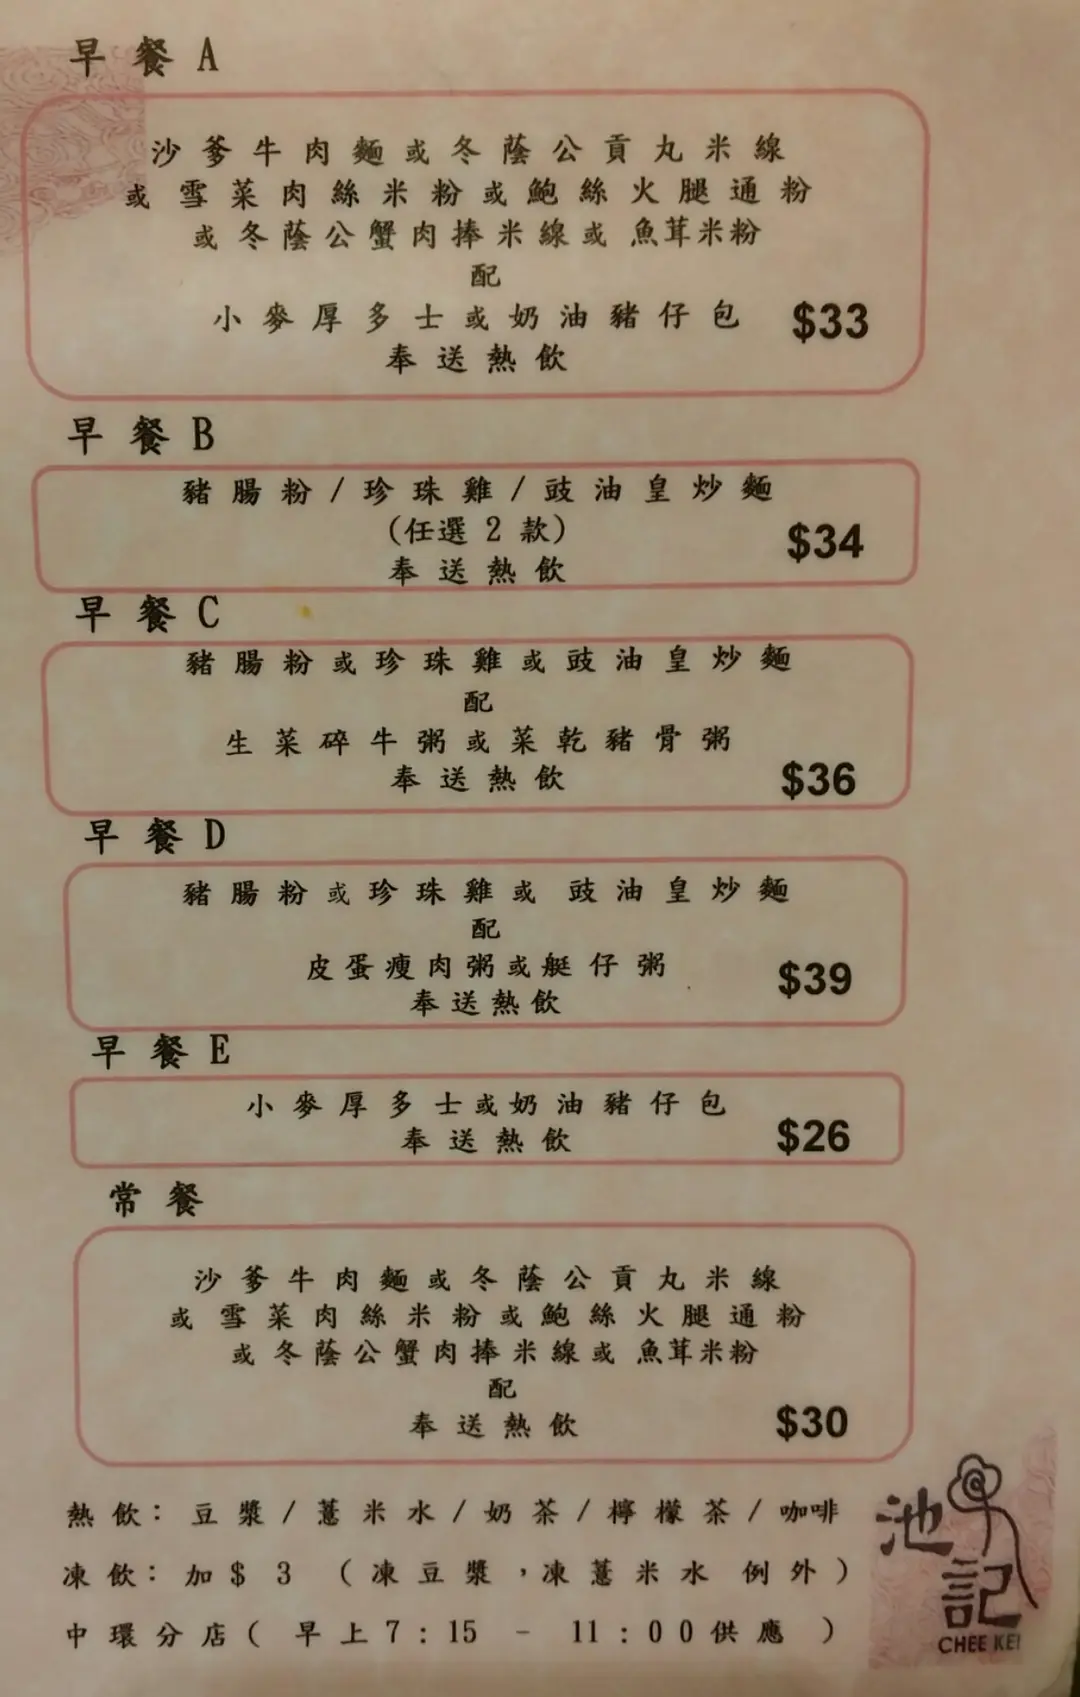 早餐A
沙爹牛肉麵或冬蔭公貢丸米線
或雪菜肉絲米粉或鮑絲火腿通粉
或冬蔭公蟹肉捧米線或魚茸米粉
配
小麥厚多士或奶油豬仔包 $33
奉送熱飲
早餐B
豬腸粉/珍珠雞/豉油皇炒麵
(任選2款)
$34
奉送熱飲
早餐C
豬腸粉或珍珠雞或豉油皇炒麵
配
生菜碎牛粥或菜乾豬骨粥
奉送熱飲 $36
早餐D
豬腸粉或珍珠雞或豉油皇炒麵
配
皮蛋瘦肉粥或艇仔粥 $39
奉送熱飲
早餐E
小麥厚多士或奶油豬仔包
奉送熱飲 $26
常餐
沙爹牛肉麵或冬蔭公貢丸米線
或雪菜肉絲米粉或鮑絲火腿通粉
或冬蔭公蟹肉捧米線或魚茸米粉
配
奉送熱飲 $30
熱飲：豆漿/薏米水/奶茶/檸檬茶/咖啡
凍飲：加$3（凍豆漿，凍薏米水 例外）
中環分店(早上7:15 - 11:00供應)
池記
CHEE KEI